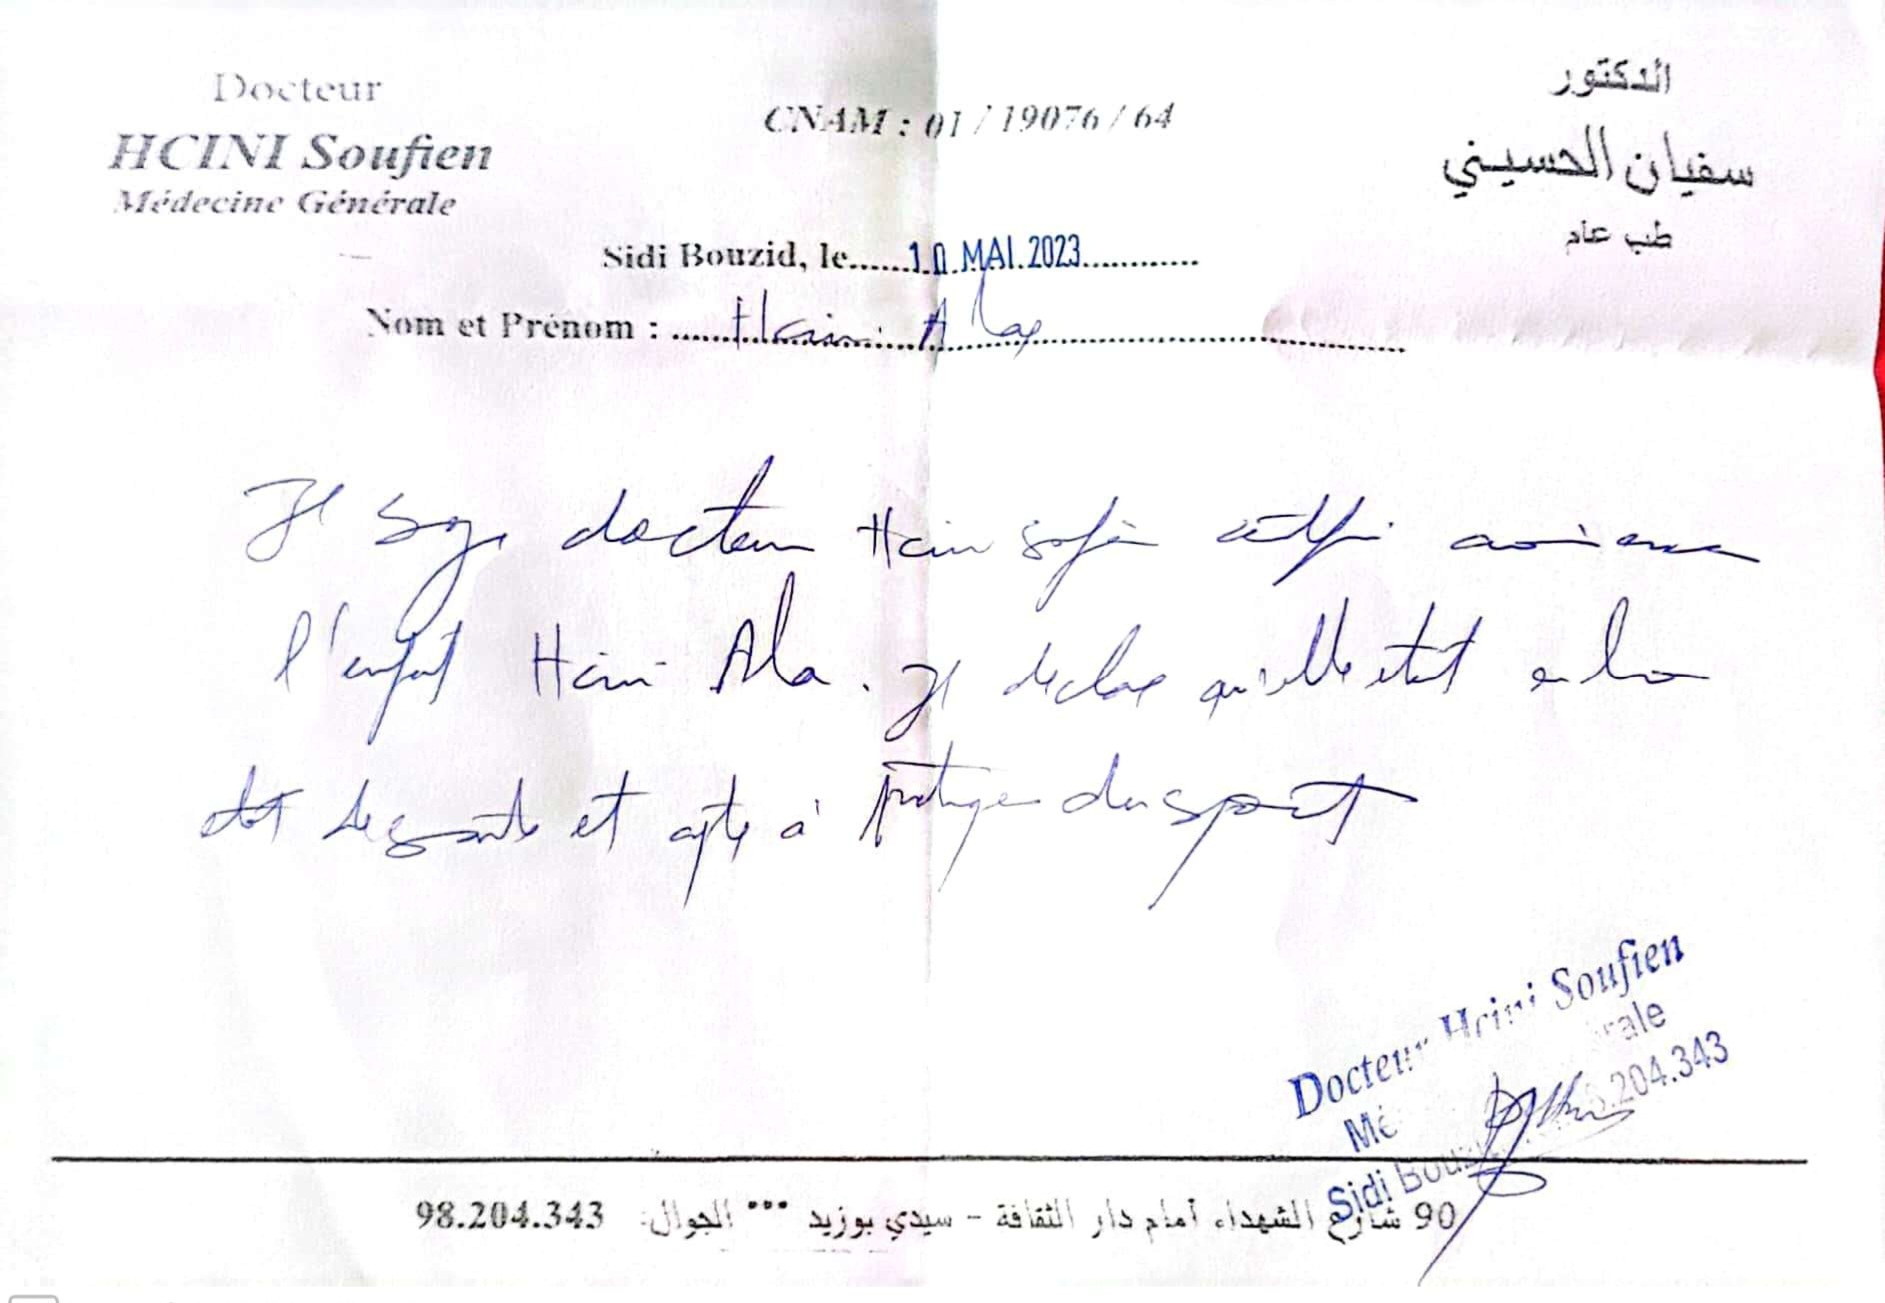 Docteur
HCINI Soufien
Médecine Générale
CNAM : 01 / 19076 / 64
الدكتور
سفيان الحسيني
طب عام
Sidi Bouzid, le......10 MAI 2023............
Nom et Prénom : Hcini Alae
Je docteur Hcini certifie avoir
l'enfant Hcini Ala. Je déclare qu'elle etat en bon
etat de santé et apte à pratiquer du sport
Docteur Hcini Soufien
204.343
Sidi Bouzid
90 شارع الشهداء أمام دار الثقافة - سيدي بوزيد *** الجوال: 98.204.343